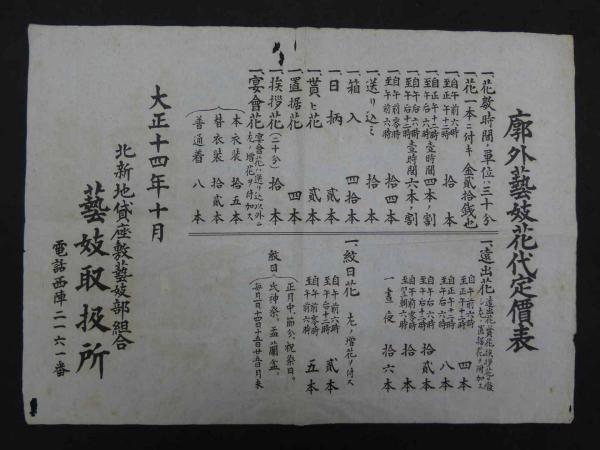 廓外藝妓花代定價表
一、花數時間ノ單位ハ三十分
一、花一本ニ付キ金貳拾錢也
一、自午前六時至正午十二時 拾本
自正午十二時至午后六時 壹時間四本ノ割
自午后六時至午后十二時 壹時間六本ノ割
自午前零時至午前六時 拾四本
一、送リ込ミ 拾本
一、箱入 四拾本
一、日柄 貳本
一、貰ヒ花 貳本
一、置据花 四本
一、挨拶花(二十分) 拾本
一、宴會花 宴會花ハ送リ込以外ニ左ノ増花ヲ附加ス
本衣裝 拾五本
替衣裝 拾貳本
普通着 八本
一、遠出花
自午前六時至正午十二時 四本
自正午十二時至午后六時 八本
自午后六時至午后十二時 拾貳本
自午前零時至翌朝六時 拾本
一晝夜 拾六本
一、紋日花 左ノ増花ヲ附ス
自午前六時至午后十二時 貳本
自午前零時至午前六時 五本
紋日
正月中、節分、祝祭日、
氏神祭、盂蘭盆、
毎月一日十四日十五日廿五日月末
大正十四年十月
北新地貸座敷藝妓部組合
藝妓取扱所
電話西陣二一六一番